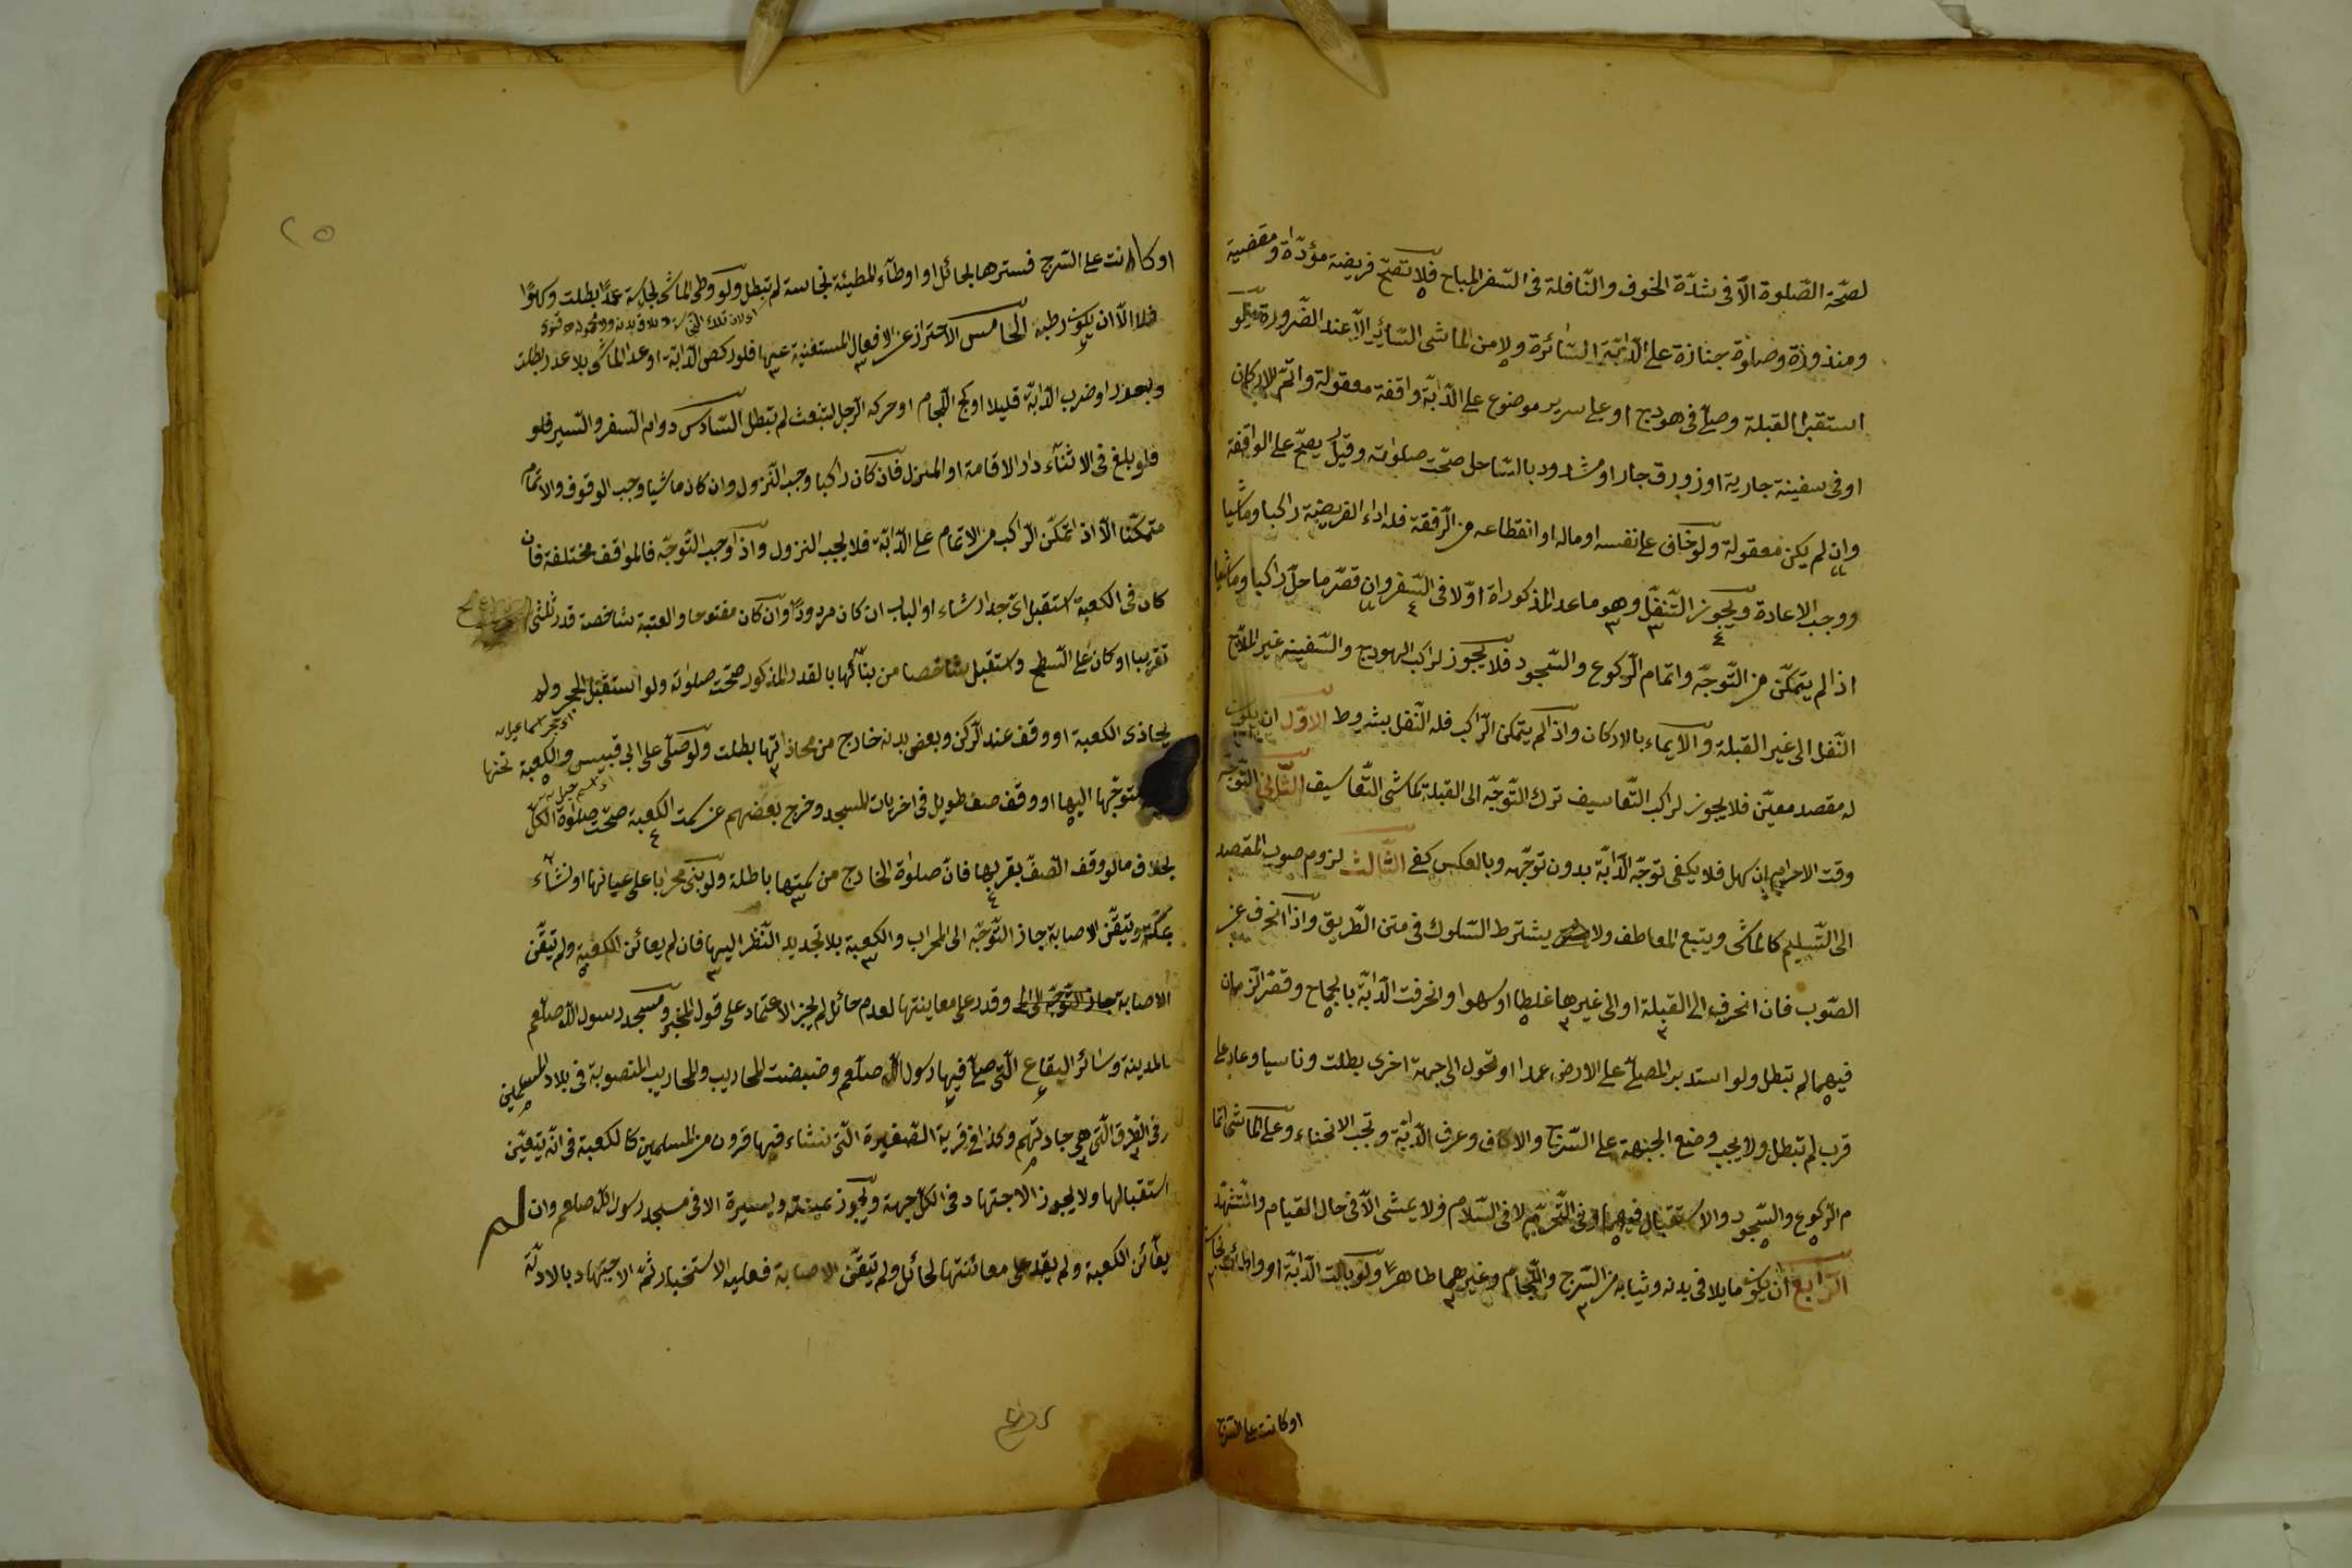 لصحّة الصّلوة الّا فى شدّة الخوف والنّافلة فى السّفر المباح فلا تصحّ فريضة مؤدّاة ومقضية
ومنذورة وصلوة جنازة على الدّابّة السّائرة ولا من الماشى السّائر الّا عند الضّرورة فلو
استقبل القبلة وصلّى فى هودج او على سرير موضوع على الدّابّة واقفة معقولة واتمّ الاركان
او فى سفينة جارية او زورق جار او مشدود بالسّاحل صحّت صلوته وقيل يصحّ على الواقفة
وان لم يكن معقولة ولو خاف على نفسه او ماله او انقطاعه من الرّفقة فله اداء الفريضة راكبا وماشيا
ووجب الاعادة ويجوز التّنفّل وهو ما عدا المذكوراة اوّلا فى السّفر وان قصر ما حلّ راكبا وماشيا
اذا لم يتمكّن من التّوجّه واتمام الرّكوع والسّجود فلا يجوز لراكب الهودج والسّفينة غير الملّاح
النّفل الى غير القبلة والايماء بالاركان واذا لم يتمكن الرّاكب فله النّفل بشروط الاوّل ان يكون
له مقصد معيّن فلا يجوز لراكب التّعاسيف ترك التّوجّه الى القبلة كماشى التّعاسيف الثّانى التّوجّه
وقت الاحرام ان سهل فلا يكفى توجّه الدّابّة بدون توجّهه وبالعكس كفى الثّالث لزوم صوب المقصد
الى التّسليم كالماشى ويتبع المعاطف ولا يشترط السّلوك فى متن الطّريق واذا انحرف عن
الصّوب فان انحرف الى القبلة او الى غيرها غلطا او سهوا او انحرفت الدّابّة بالجماح وقصر الزّمان
فيهما لم تبطل ولو استدبر المصلّى على الارض عمدا او تحول الى جهة اخرى بطلت وناسيا وعاد على
قرب لم تبطل ولا يجب وضع الجبهة على السّرج والاكاف وعرف الدّابّة وتجب الانحناء وعلى الماشى اتما
م الرّكوع والسّجود والاستقبال فيهما وفى التّحرّم لا فى السّلام ولا يمشى الّا فى حال القيام والتّشهّد
الرّابع ان يكون ما يلاقى بدنه وثيابه من السّرج واللّجام وغيرهما طاهرًا ولو بالت الدّابّة او واطأت نجاسة
او كانت على السّرج
او كانت على السّرج فسترها بحائل او اوطأء المطيئة نجاسة لم تبطل ولو وطى الماشى نجاسة عمدًا بطلت وسهوًا
فلا الّا ان يكون رطبة الخامس الاحتراز عن الافعال المستغنية عنها فلو ركض الدّابّة او عدا الماشى بلا عذر بطلت
وبعذر او ضرب الدّابّة قليلا او كبح اللّجام او حركه الرّجل لتبعث لم تبطل السّادس دوام السفر والسّير فلو
فلو بلغ فى الاثناء دار الاقامة او المنزل فان كان راكبا وجب النّزول وان كان ماشيا وجب الوقوف والاتمام
متمكّنا الّا اذا تمكّن الرّاكب من الاتمام على الدّابّة فلا يجب النزول واذا وجب التّوجّه فالمواقف مختلفة فان
كان فى الكعبة استقبل اىّ جدار شاء او الباب ان كان مردودًا وان كان مفتوحا والعتبة شاخصة قدر ثلثى
تقريبا او كان على السّطح واستقبل شاخصا من بنائها بالقدر المذكور صحّت صلوته ولو استقبل الحجر ولم
يحاذى الكعبة او وقف عند الرّكن وبعض بدنه خارج من محاذاتها بطلت ولو صلّى على ابى قبيس والكعبة تحتها
متوجّها اليها او وقف صف طويل فى اخريات المسجد وخرج بعضهم عن سمت الكعبة صحّت صلوة الكلّ
بخلاف ما لو وقف الصّفّ بقربها فانّ صلوة الخارج من سمتها باطلة ولو بنى محرابا على عيانها او نشأء
بمكّة وتيقّن الاصابة جاز التّوجّه الى المحراب والكعبة بلا تجديد النّظر اليها فان لم يعائن الكعبة ولم تيقّن
الاصابة وقدر على معاينتها لعدم حائل لم يجز الاعتماد على قول المخبر ومسجد رسول الله صلّعم
بالمدينة وسائر البقاع الّتى صلّى فيها رسول الله صلّعم وضبضت المحاريب والمحاريب المنصوبة فى بلاد المسلمين
وفى الطّرق الّتى هى جادتهم وكذا فى قرية الصّغيرة الّتى نشاء فيها قرون من المسلمين كالكعبة فى انّه يتعيّن
استقبالها ولا يجوز الاجتهاد فى الكلّ جهة ويجوز يمينة ويسيرة الا فى مسجد رسول الله صلعم وان لم
يعأئن الكعبة ولم يقدر على معائنتها لحائل ولم تيقّن الاصابة فعليه الاستخبار ثمّ الاجتهاد بالادلّة